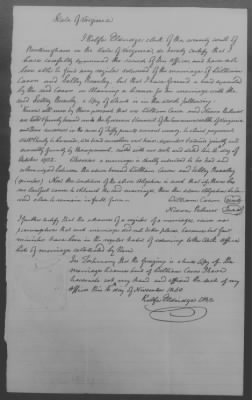 State of Virginia
I Rolfe Eldridge clerk of the county court of
Buckingham in the State of Virginia, do hereby certify that I
have carefully examined the records of this office, and have not
been able to find any register returned of the marriage of William
Cason and Salley Beasley, but that I have found a bond executed
by the said Cason on obtaining a license for his marriage with the
said Salley Beasley, a Copy of which is in the words following:
Know all men by these presents that we William Cason and
are held & firmly bound unto the Governor of the Commonwealth of Virginia
and successors in the sum of fifty pounds current money, to which payment
well & truly to be made, we bind ourselves our heirs jointly and
severally firmly by these presents, with our seals and dated this day of
October 1785. Whereas a marriage is shortly intended to be had and
solemnized between the above bound William Cason and Salley Beasley
(spinster). Now the condition of the above obligation is such that if there be
no lawful cause to obstruct the said marriage, then the above obligation to be
void else to remain in full force.
William Cason (Seal)
(Seal)
I further certify that the absence of a register of a marriage, raises no
presumption that such marriage did not take place, because but few
ministers have been in the regular habit of returning to the clerk's Office
lists of marriages celebrated by them
In Testimony that the foregoing is a true copy of the
marriage license bond of William Cason I have
hereunto set my hand and affixed the seal of my
office this day of November 1850
Rolfe Eldridge Clk